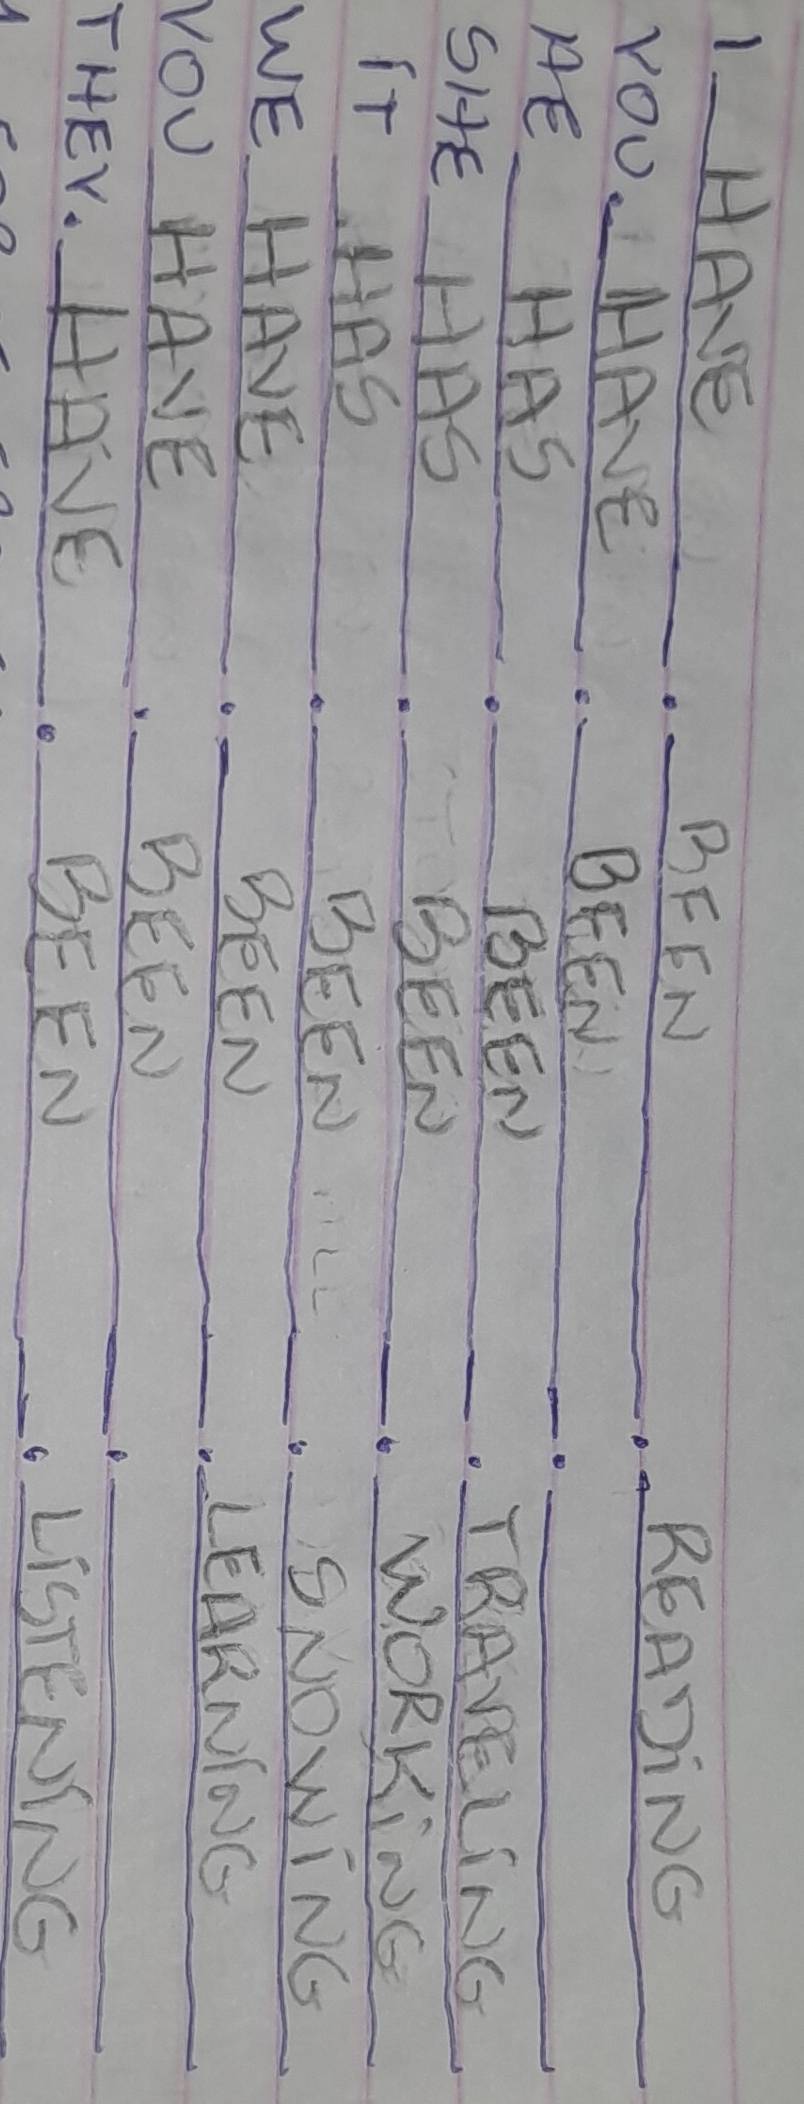 I HAVE BEEN READING
YOU. HAVE BEEN
HE HAS BEEN TRAVELING
SHE HAS BEEN WORKING
IT HAS BEEN SNOWING
WE HAVE BEEN LEARNING
YOU HAVE BEEN
THEY. HAVE BEEN LISTENING